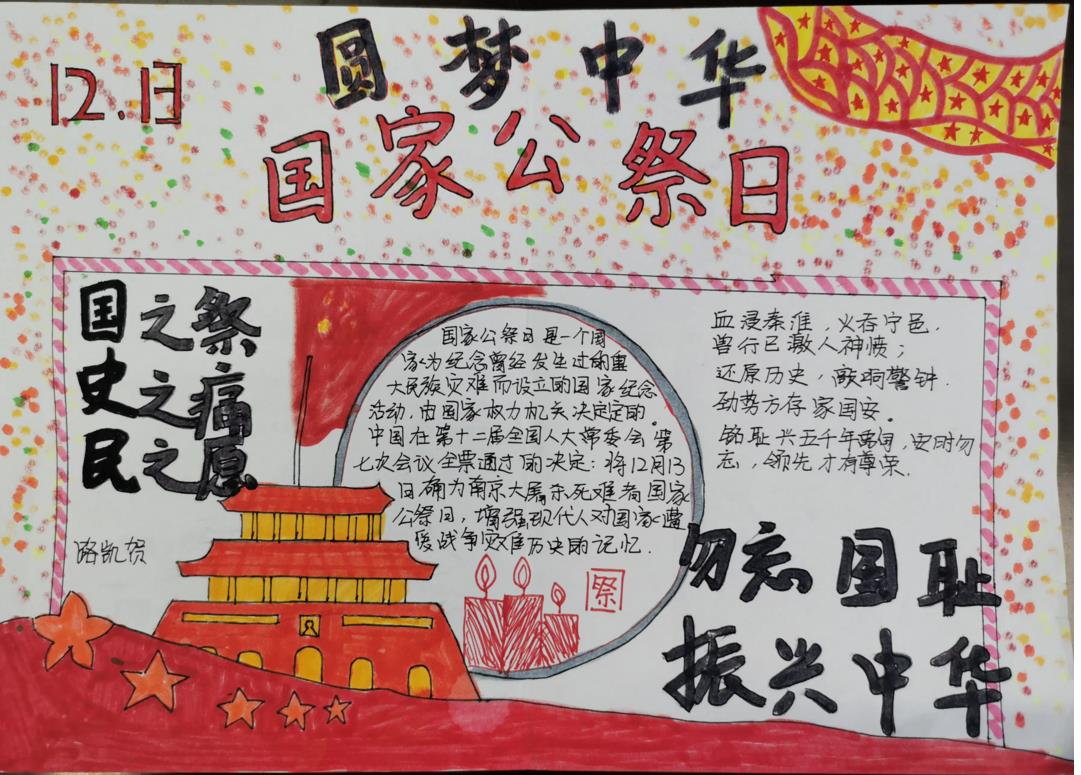 12.13
圆梦中华
国家公祭日
国之祭
史之痛
民之愿
路凯贺
国家公祭日是一个国
家为纪念曾经发生过的重
大民族灾难而设立的国家纪念
活动，由国家权力机关决定定的。
中国在第十二届全国人大常委会第
七次会议全票通过的决定：将12月13
日确为南京大屠杀死难者国家
公祭日，增强现代人对国家遭
受战争灾难历史的记忆.
祭
血浸秦淮，火吞宁邑.
兽行已激人神愤；
还原历史，敲响警钟.
劲势方存家国安。
铭耻兴五千年，安时勿
忘，领先才有尊荣.
勿忘国耻
振兴中华